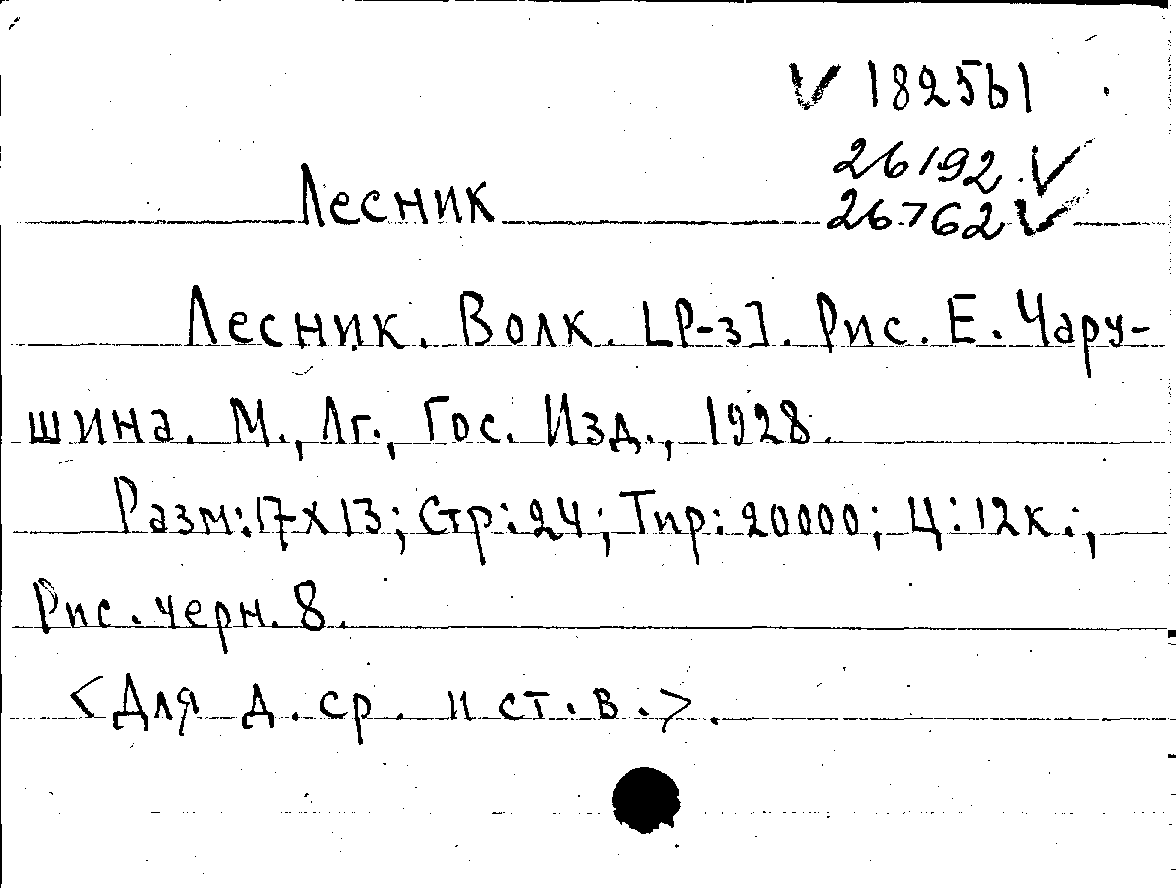 V 182561
26192 V
Лесник
26762 V
Лесник. Волк. [Р-з]. Рис. Е. Чару-
шина. М., Лг., Гос. Изд., 1928.
Разм: 17х13; Стр: 24; Тир: 20000; Ц: 12к.;
Рис. черн. 8.
<Для д. ср. и ст. в.>.